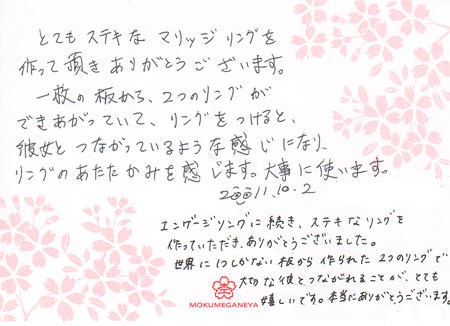 とてもステキなマリッジリングを
作って頂きありがとうございます。
一枚の板から、2つのリングが
できあがっていて、リングをつけると、
彼女とつながっているような感じになり、
リングのあたたかみを感じます。大事に使います。
2011.10.2
エンゲージリングに続き、ステキなリングを
作っていただき、ありがとうございました。
世界に1つしかない板から作られた2つのリングで
大切な彼とつながれることが、とても
嬉しいです。本当にありがとうございます。
MOKUMEGANEYA